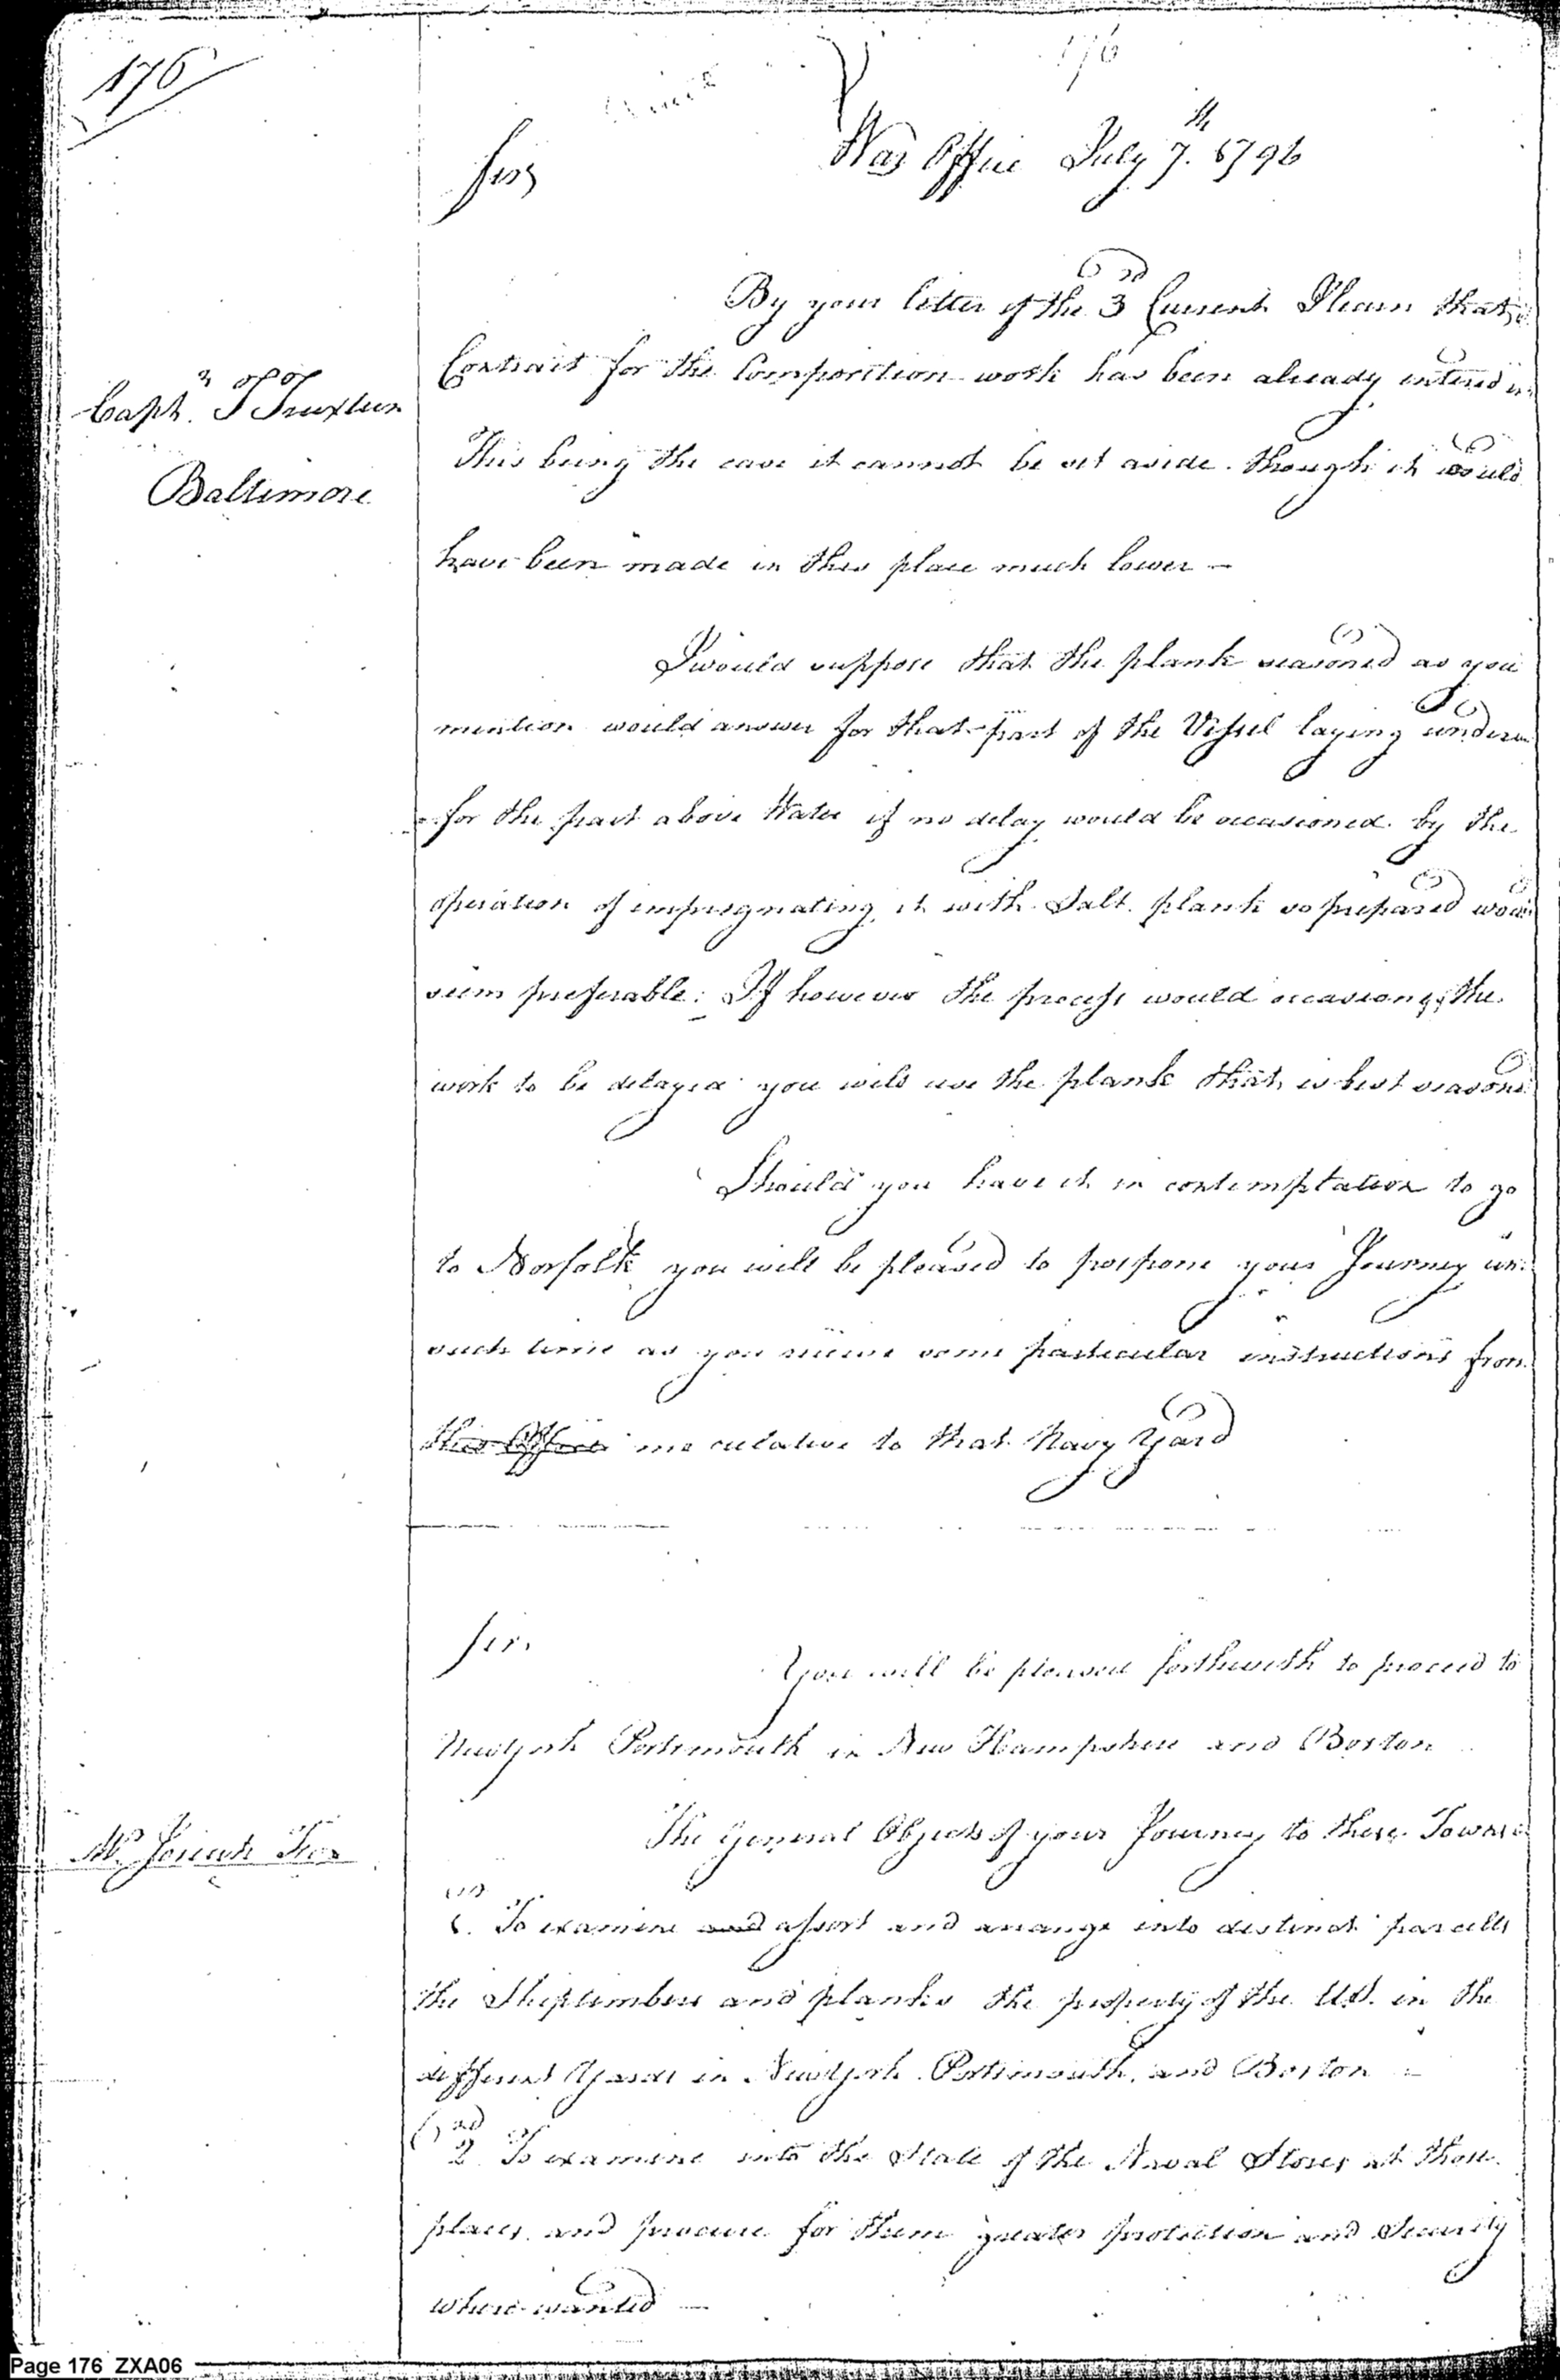 176
176
War Office July 7th 1796
Sir
By your letter of the 3rd Current I learn that
Contract for the Composition work has been already entered in
Captn T Truxtun
Baltimore
This being the case it cannot be set aside though it would
have been made in this place much lower —
I would suppose that the plank seasoned as you
mention would answer for that part of the Vessel laying under
for the part above Water if no delay would be occasioned by the
operation of impregnating it with Salt. plank so prepared would
seem preferable: If however the process would occasion the
work to be delayed you will use the plank that is best seasoned
Should you have it in contemptation to go
to Norfolk you will be pleased to postpone your Journey un
such time as you receive some particular instructions from
this Office me relative to that Navy Yard
Sir,
You will be pleased forthwith to proceed to
Newyork Portsmouth in New Hampshire and Boston
Mr. Josiah Fox
The General Objects of your Journey to these Towns
1st To examine and assort and arrange into distinct parcells
the Shiptimbers and planks the property of the U.S. in the
different Yards in Newyork Portsmouth, and Boston —
2nd To examine into the State of the Naval Stores at those
places and procure for them greater protection and Security
where wanted —
Page 176 ZXA06